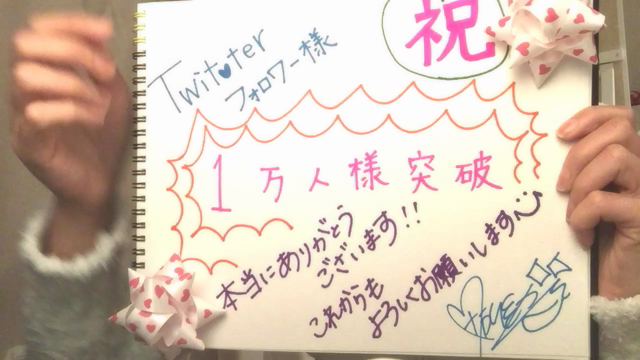 祝
Twitter
フォロワー様
1万人様突破
本当にありがとう
ございます!!
これからも
よろしくお願いします